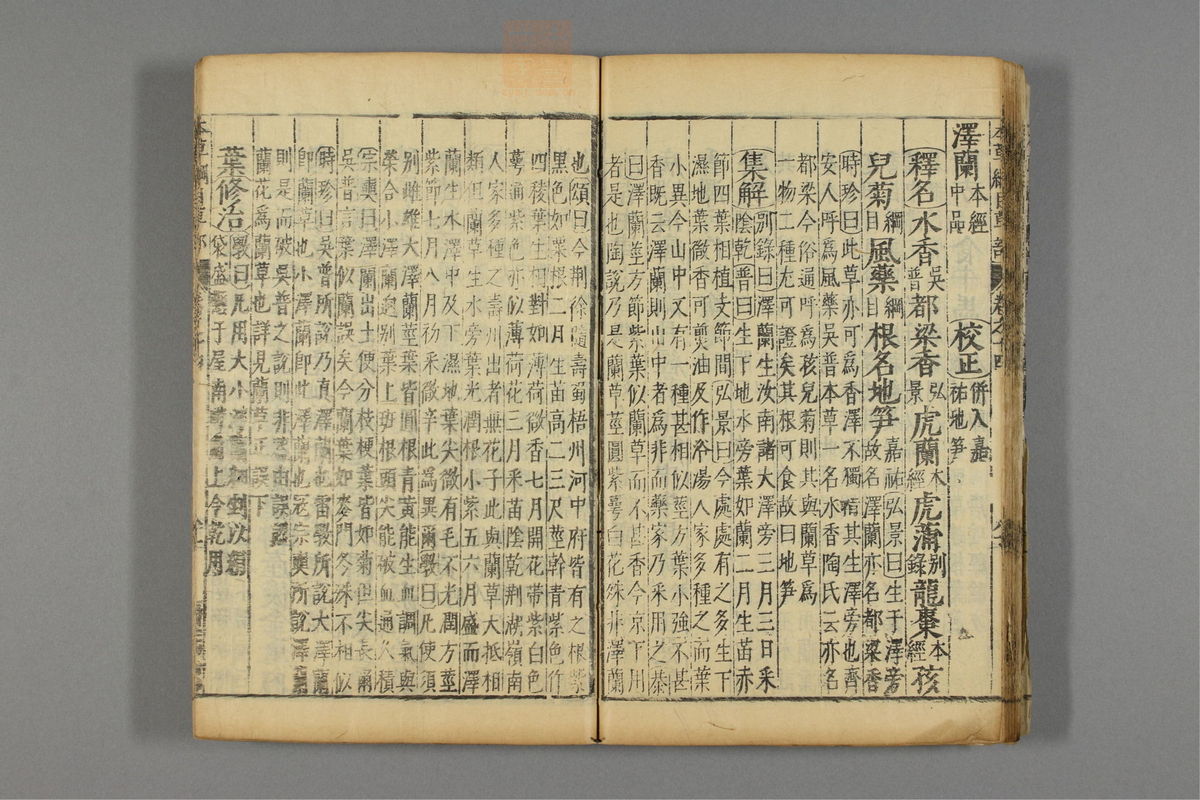 本草綱目草部 卷之十四
澤蘭本經中品 校正併入嘉祐地笋
釋名水香吳普都梁香弘景虎蘭本經虎蒲別錄龍棗本經孩
兒菊綱目風藥綱目根名地笋嘉祐弘景曰生于澤旁故名澤蘭亦名都梁香
時珍曰此草亦可為香澤不獨指其生澤旁也齊
安人呼為風藥吳普本草一名水香陶氏云亦名
都梁今俗通呼為孩兒菊則其與蘭草為
一物二種尤可證矣其根可食故曰地笋
集解別錄曰澤蘭生汝南諸大澤旁三月三日采陰乾普曰生下地水旁葉如蘭二月生苗赤
節四葉相植支節間弘景曰今處處有之多生下
濕地葉微香可煎油及作浴湯人家多種之而葉
小異今山中又有一種甚相似莖方葉小強不甚
香既云澤蘭則山中者為非而藥家乃采用之恭
曰澤蘭莖方節紫葉似蘭草而不甚香今京下用
者是也陶說乃是蘭草莖圓紫萼白花殊非澤蘭
也頌曰今荊徐隨壽蜀梧州河中府皆有之根紫
黑色如粟根二月生苗高二三尺莖幹青紫色作
四稜葉生相對如薄荷微香七月開花帶紫白色
萼通紫色亦似薄荷花三月采苗陰乾荊湖嶺南
人家多種之壽州出者無花子此與蘭草大抵相
類但蘭草生水旁葉光潤根小紫五六月盛而澤
蘭生水澤中及下濕地葉尖微有毛不光潤方莖
紫節七月八月初采微辛此為異爾斆曰凡使須
別雌雄大澤蘭莖葉皆圓根青黃能生血調氣與
榮合小澤蘭迥別葉上斑根頭尖能破血通久積
宗奭曰澤蘭出土便分枝梗葉皆如菊但尖長爾
吳普言葉似蘭誤矣今蘭葉如麥門冬殊不相似
時珍曰吳普所說乃真澤蘭也雷斆所說大澤蘭
即蘭草也小澤蘭即此澤蘭也寇宗奭所說澤蘭
則是而破吳普之說則非蓋由誤認
蘭花為蘭草也詳見蘭草正誤下
葉修治斆曰凡用大小澤蘭細剉以絹袋盛懸于屋南畔角上令乾用